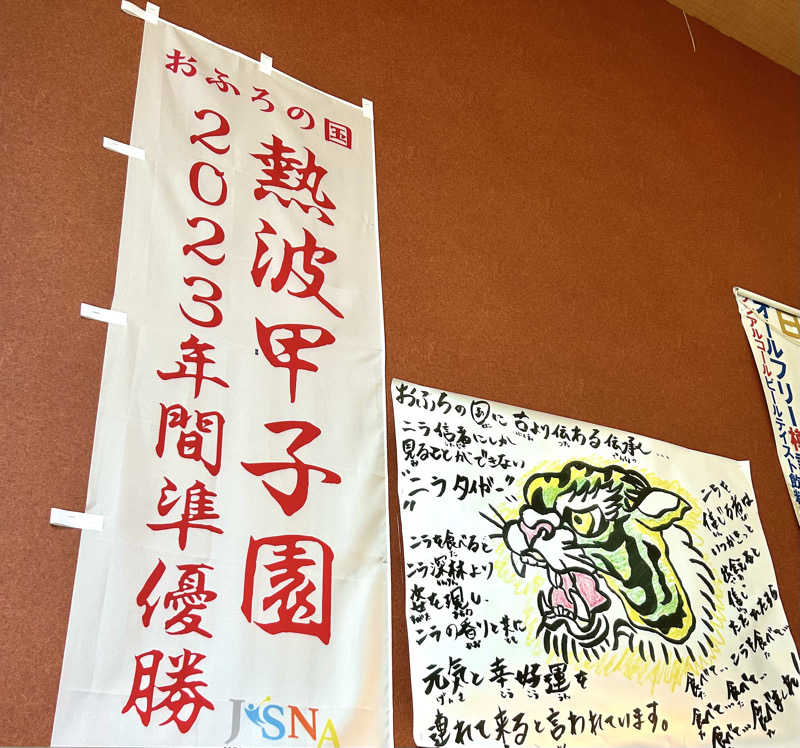 おふろの国
熱波甲子園
2023年間準優勝
JSNA
おふろの国に古より伝わる伝承し…
ニラ信者にしか
見ることができない
"ニラタイガー"
ニラを食べると
ニラ深林より
姿を現し
ニラの香りと共に
元気と幸好運を
連れて来ると言われています。
ニラを
信じる者は
いつかきっと
出会えると
信じ
ただただたまたま
ニラを食べて…
食べて…食べて…
食べて…食べまくれ!
オールフリー
ノンアルコールビールテイスト飲料